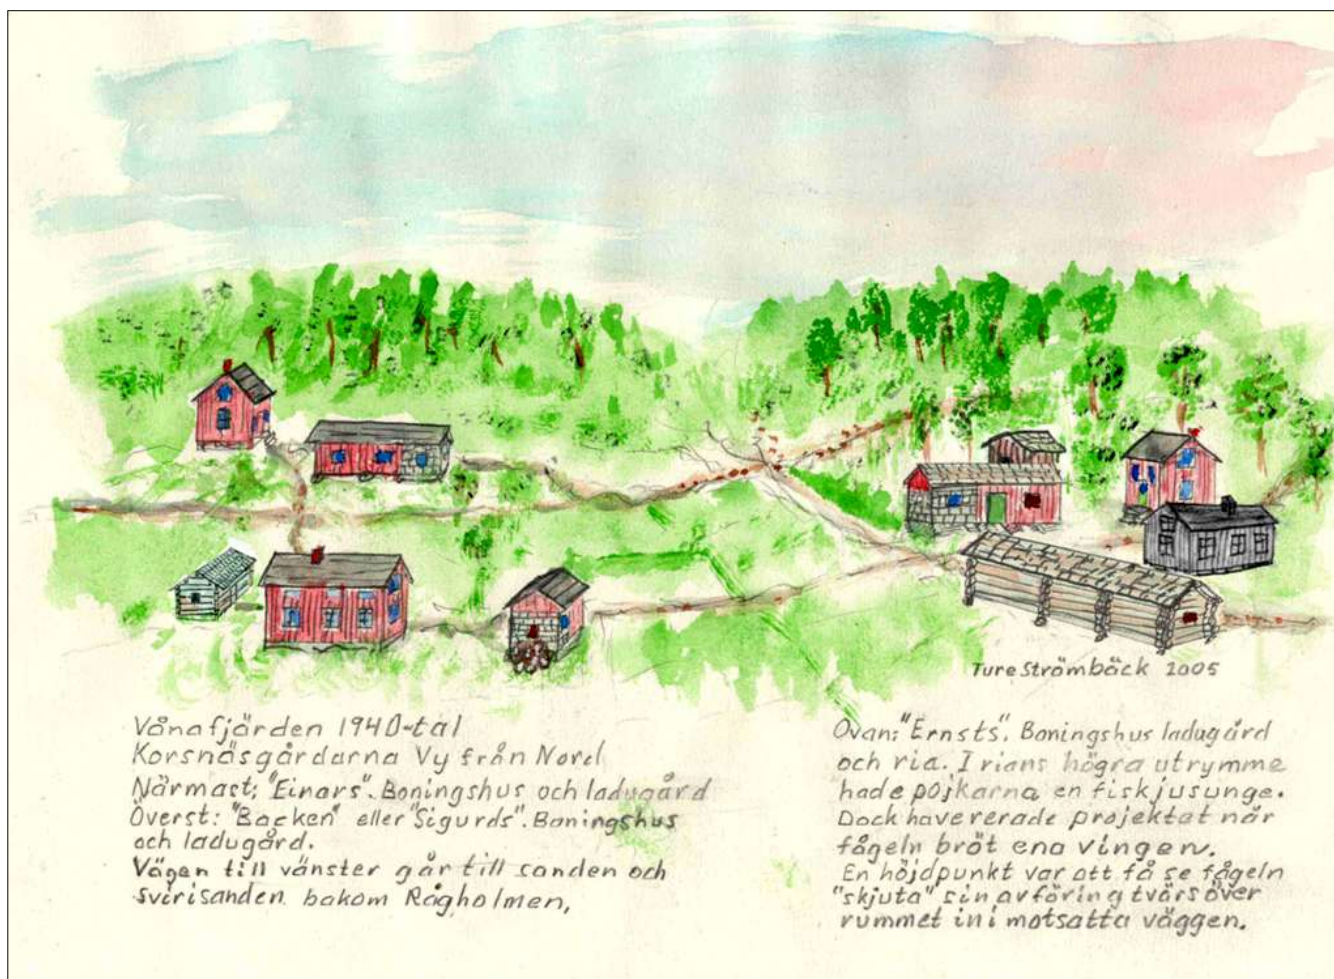 Ture Strömbäck 2005
Vånafjärden 1940-tal
Korsnäsgårdarna Vy från Nord
Närmast: "Einars". Boningshus och ladugård
Överst: "Backen" eller "Sigurds". Boningshus
och ladugård.
Vägen till vänster går till sanden och
Svirisanden bakom Rågholmen,
Ovan: "Ernsts". Boningshus ladugård
och ria. I rians högra utrymme
hade pojkarna en fiskjusunge.
Dock havererade projektet när
fågeln bröt ena vingen.
En höjdpunkt var att få se fågeln
"skjuta" sin avföring tvärs över
rummet in i motsatta väggen.